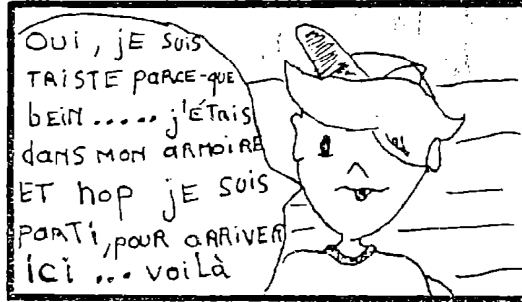 OUI, jE SUIS
TRISTE PARCE-QUE
bEIN ..... j'ÉTAIS
dANS MON ARMOIRE
ET hop jE SUIS
PARTI, POUR ARRIVER
ICI ... voILÀ